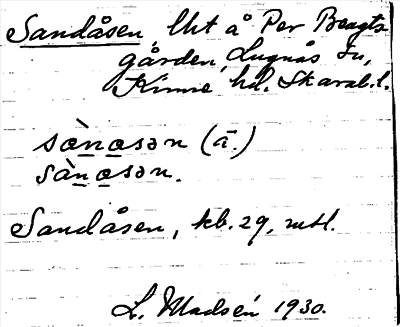 Sandåsen, lht å Per Bengts-
gården, Lugnås sn,
Kinne hd. Skarab. l.
sànasən (ā.)
sànasən.
Sandåsen, kb. 29, mtl.
L. Madsén 1930.